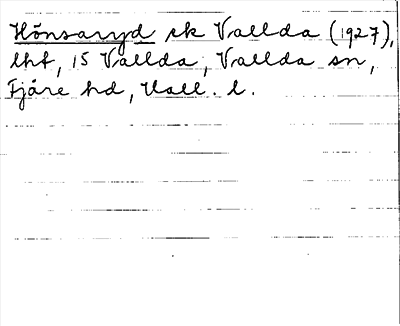 Hönsaryd sk Vallda (1927),
lht, 15 Vallda, Vallda sn,
Fjäre hd, Hall. l.